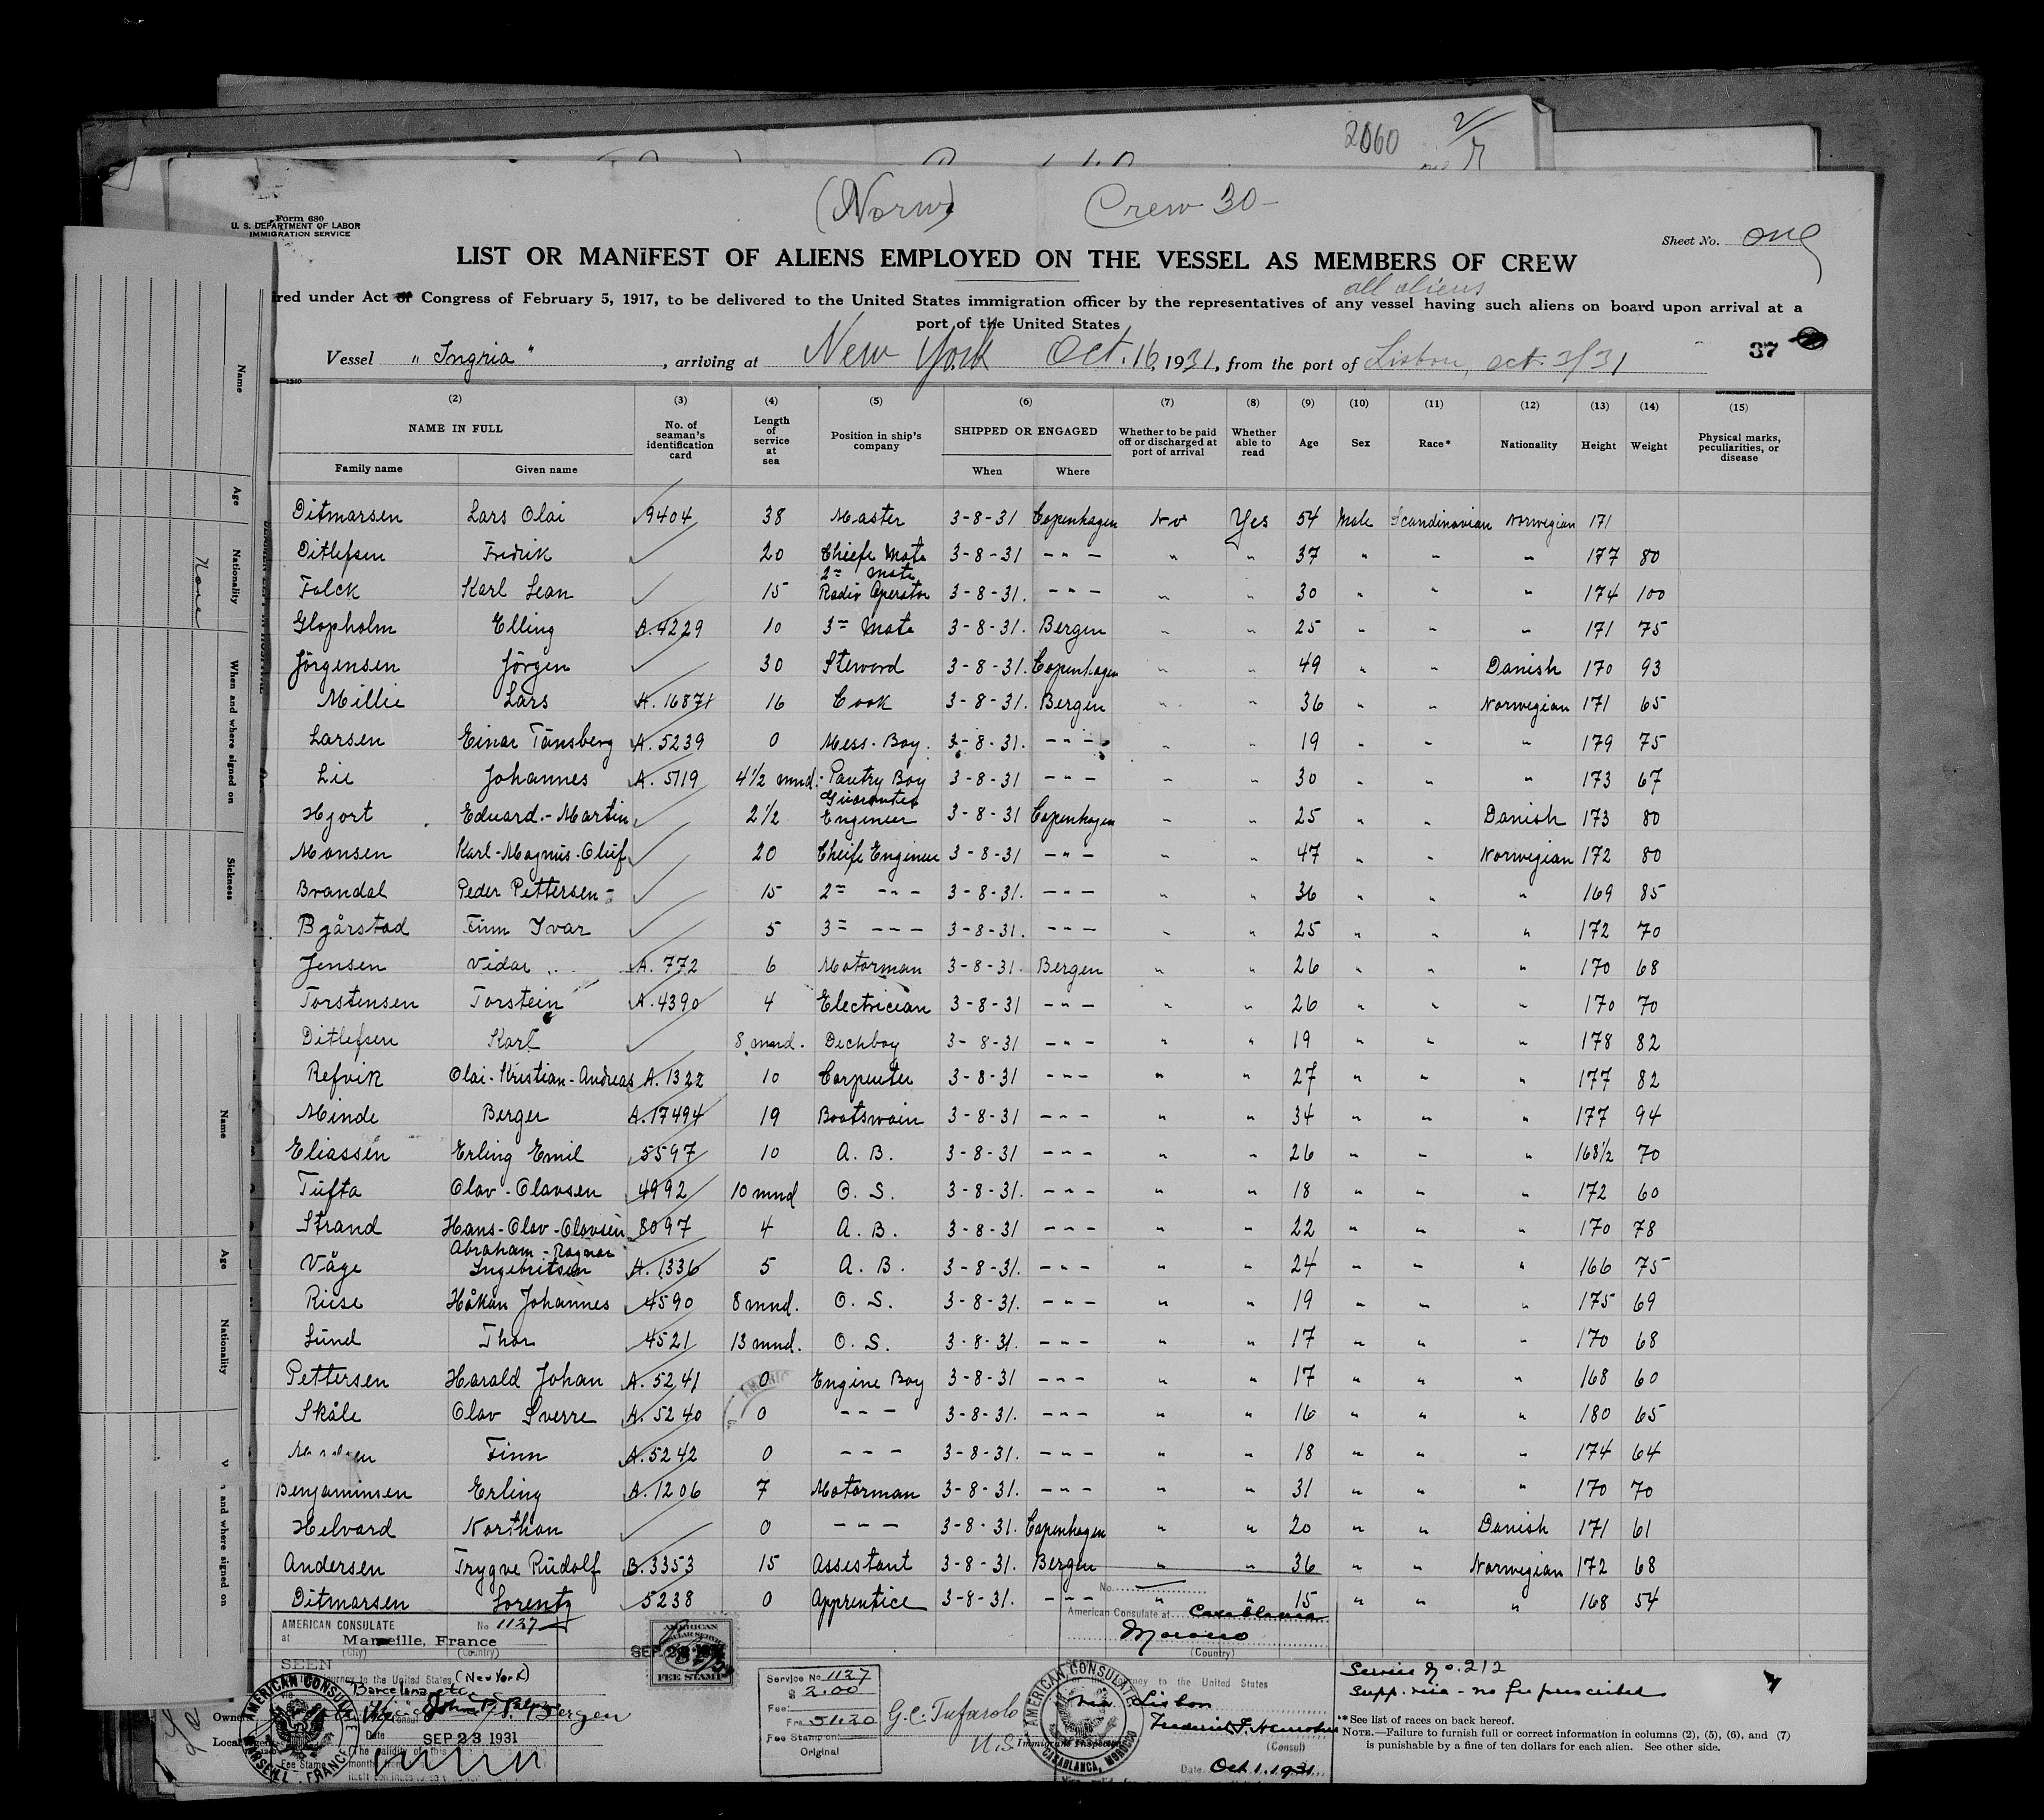 2060 2/
(Norw) Crew 30-
Form 680
U. S. DEPARTMENT OF LABOR
IMMIGRATION SERVICE
Sheet No. one
LIST OR MANIFEST OF ALIENS EMPLOYED ON THE VESSEL AS MEMBERS OF CREW
all aliens
red under Act of Congress of February 5, 1917, to be delivered to the United States immigration officer by the representatives of any vessel having such aliens on board upon arrival at a
port of the United States
Vessel "Ingria", arriving at New York Oct. 16, 1931, from the port of Lisbon, Oct. 3/31 37
(2) (3) (4) (5) (6) (7) (8) (9) (10) (11) (12) (13) (14) (15)
NAME IN FULL No. of seaman's identification card Length of service at sea Position in ship's company SHIPPED OR ENGAGED Whether to be paid off or discharged at port of arrival Whether able to read Age Sex Race* Nationality Height Weight Physical marks, peculiarities, or disease
Family name Given name When Where
Ditmarsen Lars Olai 9404 38 Master 3-8-31 Copenhagen No Yes 54 Male Scandinavian Norwegian 171
Ditlefsen Fredrik 20 Cheife Mate 3-8-31 -"- " " 37 " " " 177 80
Falck Karl Lean 15 2= mate Radio Operator 3-8-31. -"- " " 30 " " " 174 100
Glopholm Elling A.4229 10 3= Mate 3-8-31. Bergen " " 25 " " " 171 75
Jörgensen Jörgen 30 Steword 3-8-31. Copenhagen " " 49 " " Danish 170 93
Millie Lars A. 16871 16 Cook 3-8-31. Bergen " " 36 " " Norwegian 171 65
Larsen Einar Tänsberg A. 5239 0 Mess-Boy. 3-8-31. -"- " " 19 " " " 179 75
Lie Johannes A. 5119 4½ mnd. Pantry Boy 3-8-31 -"- " " 30 " " " 173 67
Hjort Eduard-Martin 2½ Guarantee Engineer 3-8-31 Copenhagen " " 25 " " Danish 173 80
Monsen Karl-Magnus-Oluf 20 Cheife Engineer 3-8-31 -"- " " 47 " " Norwegian 172 80
Brandal Peder Pettersen 15 2= -"- 3-8-31. -"- " " 36 " " " 169 85
Bgårstad Finn Ivar 5 3= -"- 3-8-31. -"- " " 25 " " " 172 70
Jensen Vidar A. 772 6 Motorman 3-8-31. Bergen " " 26 " " " 170 68
Torstensen Torstein A.4390 4 Electrician 3-8-31 -"- " " 26 " " " 170 70
Ditlefsen Karl 8 mnd. Dechboy 3-8-31 -"- " " 19 " " " 178 82
Refvik Olai-Kristian-Andreas A.1322 10 Carpenter 3-8-31 -"- " " 27 " " " 177 82
Minde Berger A.17494 19 Boatswain 3-8-31 -"- " " 34 " " " 177 94
Eliassen Erling Emil 5597 10 A. B. 3-8-31 -"- " " 26 " " " 168½ 70
Tufta Olav-Olavsen 4992 10 mnd O. S. 3-8-31. -"- " " 18 " " " 172 60
Strand Hans-Olav-Olavsen 8097 4 A. B. 3-8-31 -"- " " 22 " " " 170 78
Våge Abraham-Ragnar Ingebritsen A. 1336 5 A. B. 3-8-31. -"- " " 24 " " " 166 75
Riise Håkan Johannes 4590 8 mnd. O. S. 3-8-31. -"- " " 19 " " " 175 69
Lund Thor 4521 13 mnd. O. S. 3-8-31. -"- " " 17 " " " 170 68
Pettersen Harald Johan A. 5241 0 Engine Boy 3-8-31 -"- " " 17 " " " 168 60
Skåle Olav Sverre A. 5240 0 -"- 3-8-31. -"- " " 16 " " " 180 65
Finn A.5242 0 -"- 3-8-31. -"- " " 18 " " " 174 64
Benjaminsen Erling A.1206 7 Motorman 3-8-31. -"- " " 31 " " " 170 70
Helvard Northan 0 -"- 3-8-31. Copenhagen " " 20 " " Danish 171 61
Andersen Trygve Rudolf B.3353 15 Assistant 3-8-31. Bergen " " 36 " " Norwegian 172 68
Ditmarsen Lorentz 5238 0 Apprentice 3-8-31. -"- " " 15 " " " 168 54
AMERICAN CONSULATE No 1137
at Marseille, France
(City) (Country)
SEEN
journey to the United States (New York)
Barcelona etc.
Bergen
Date SEP 23 1931
AMERICAN CONSULATE MARSEILLE, FRANCE
Owners
Local Agents
SEP 23 1931
AMERICAN CONSULAR SERVICE
FEE STAMP
Service No 1137
$ 2.00
Fee:
Frs 51.20
Fee Stamp on
Original
G.C. Tufarolo
U.S. Immigrant Inspector
No.
American Consulate at Casablanca
Morocco
(Country)
journey to the United States
via Lisbon
(Consul)
Date Oct 1. 1931
AMERICAN CONSULATE CASABLANCA, MOROCCO
Service No. 212
Supp. visa - no fee prescribed
* See list of races on back hereof.
NOTE.—Failure to furnish full or correct information in columns (2), (5), (6), and (7)
is punishable by a fine of ten dollars for each alien. See other side.
Name
Age
Nationality
None
When and where signed on
Sickness
Name
Age
Nationality
and where signed on